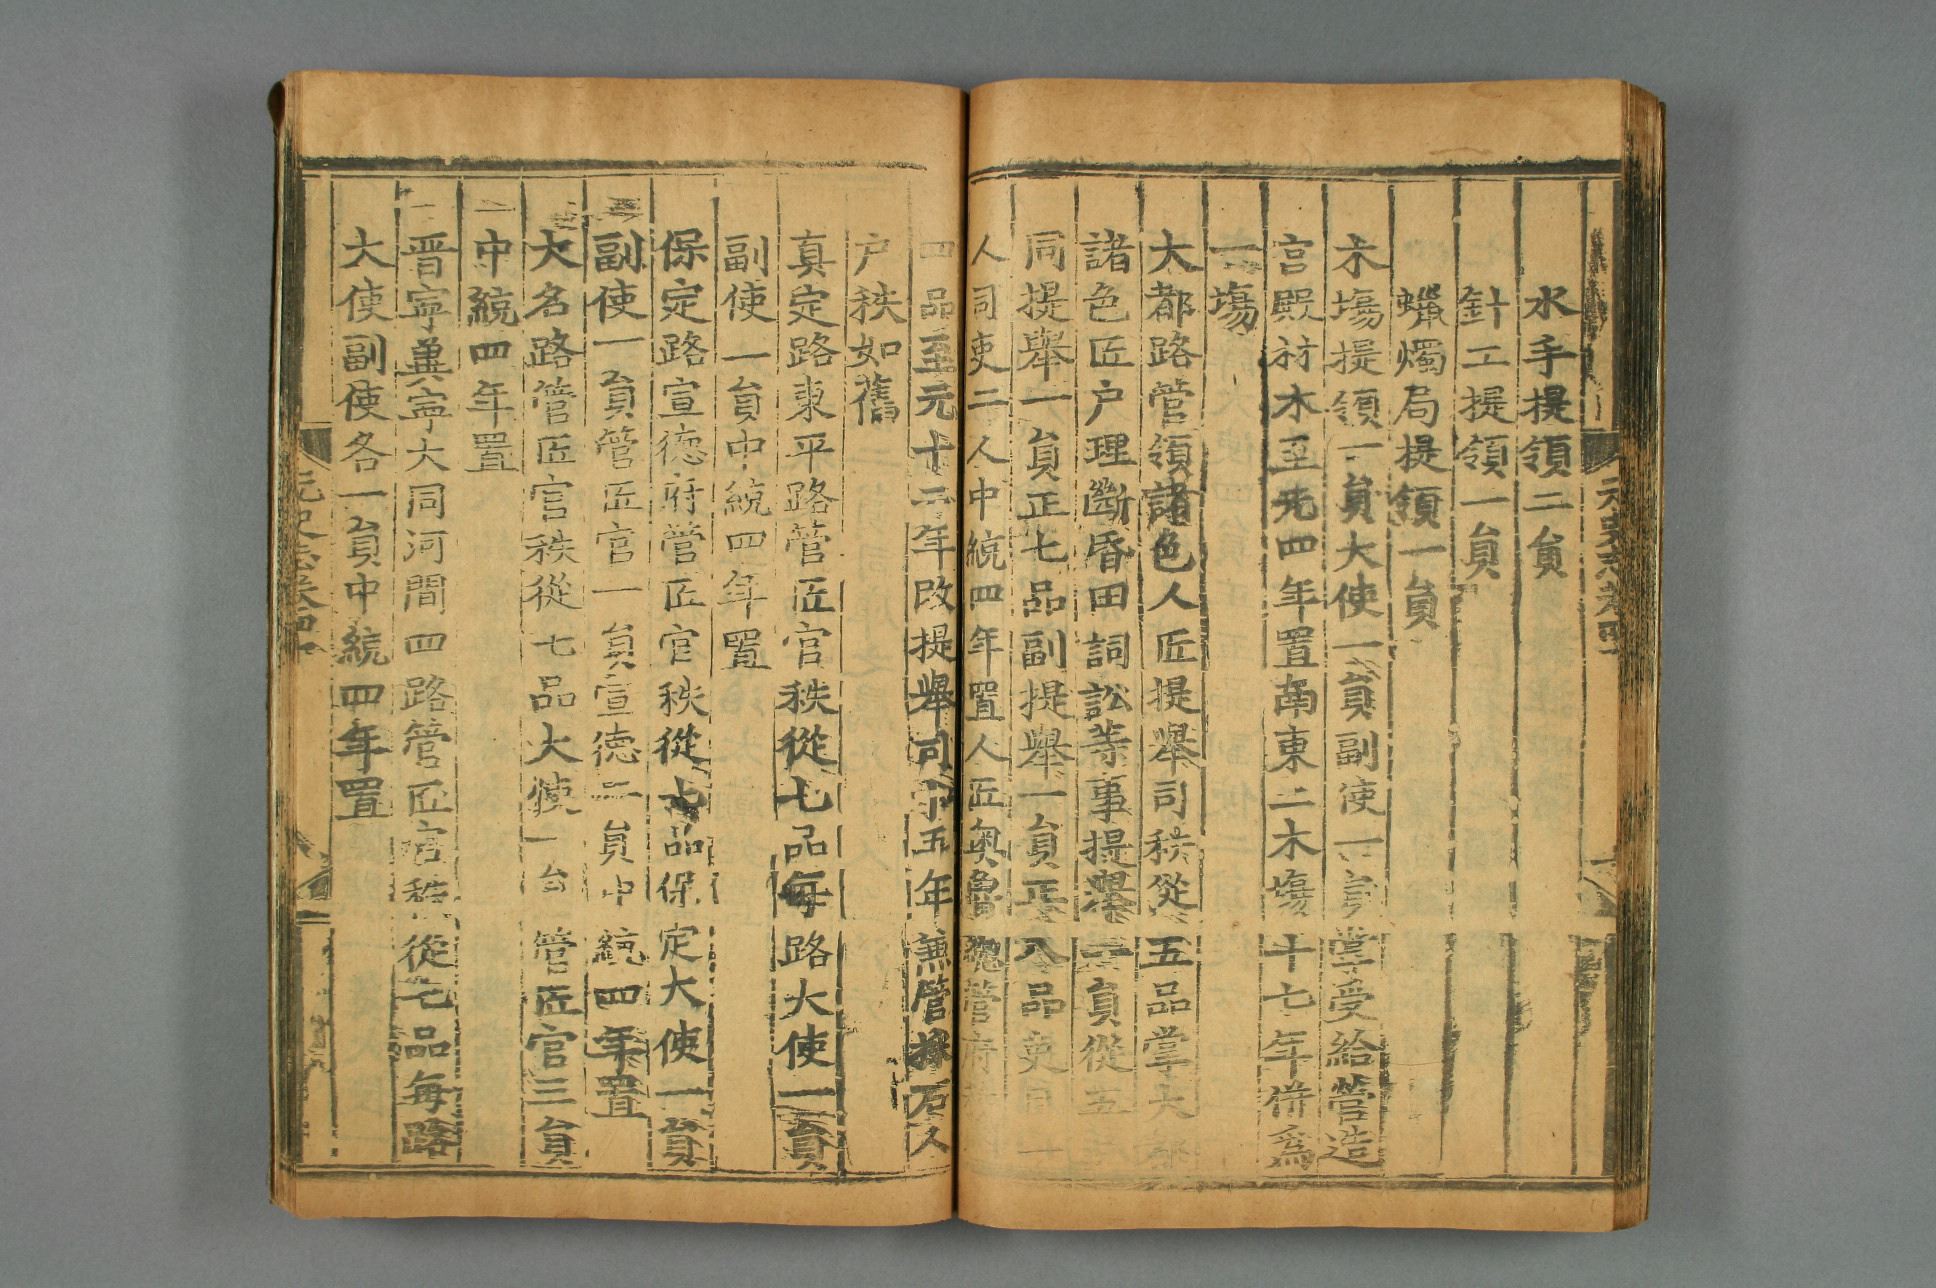 水手提領二員
針工提領一員
蠟燭局提領一員
木塲提領一員大使一員副使一員掌受給營造
宫殿材木至元四年置南東二木塲十七年併爲
一塲
大都路管領諸色人匠提舉司秩從五品掌大都
諸色匠户理斷昏田詞訟等事提舉一員從五品
同提舉一員正七品副提舉一員正八品吏目一
人司吏二人中統四年置人匠奥魯總管府秩
四品至元十二年改提舉司十五年兼管採石人
户秩如舊
真定路東平路管匠官秩從七品每路大使一員
副使一員中統四年置
保定路宣徳府管匠官秩從七品保定大使一員
副使一員管匠官一員宣徳二員中統四年置
大名路管匠官秩從七品大使一員管匠官三員
中統四年置
晋寧兾寧大同河間四路管匠官秩從七品每路
大使副使各一員中統四年置
元史志卷四十